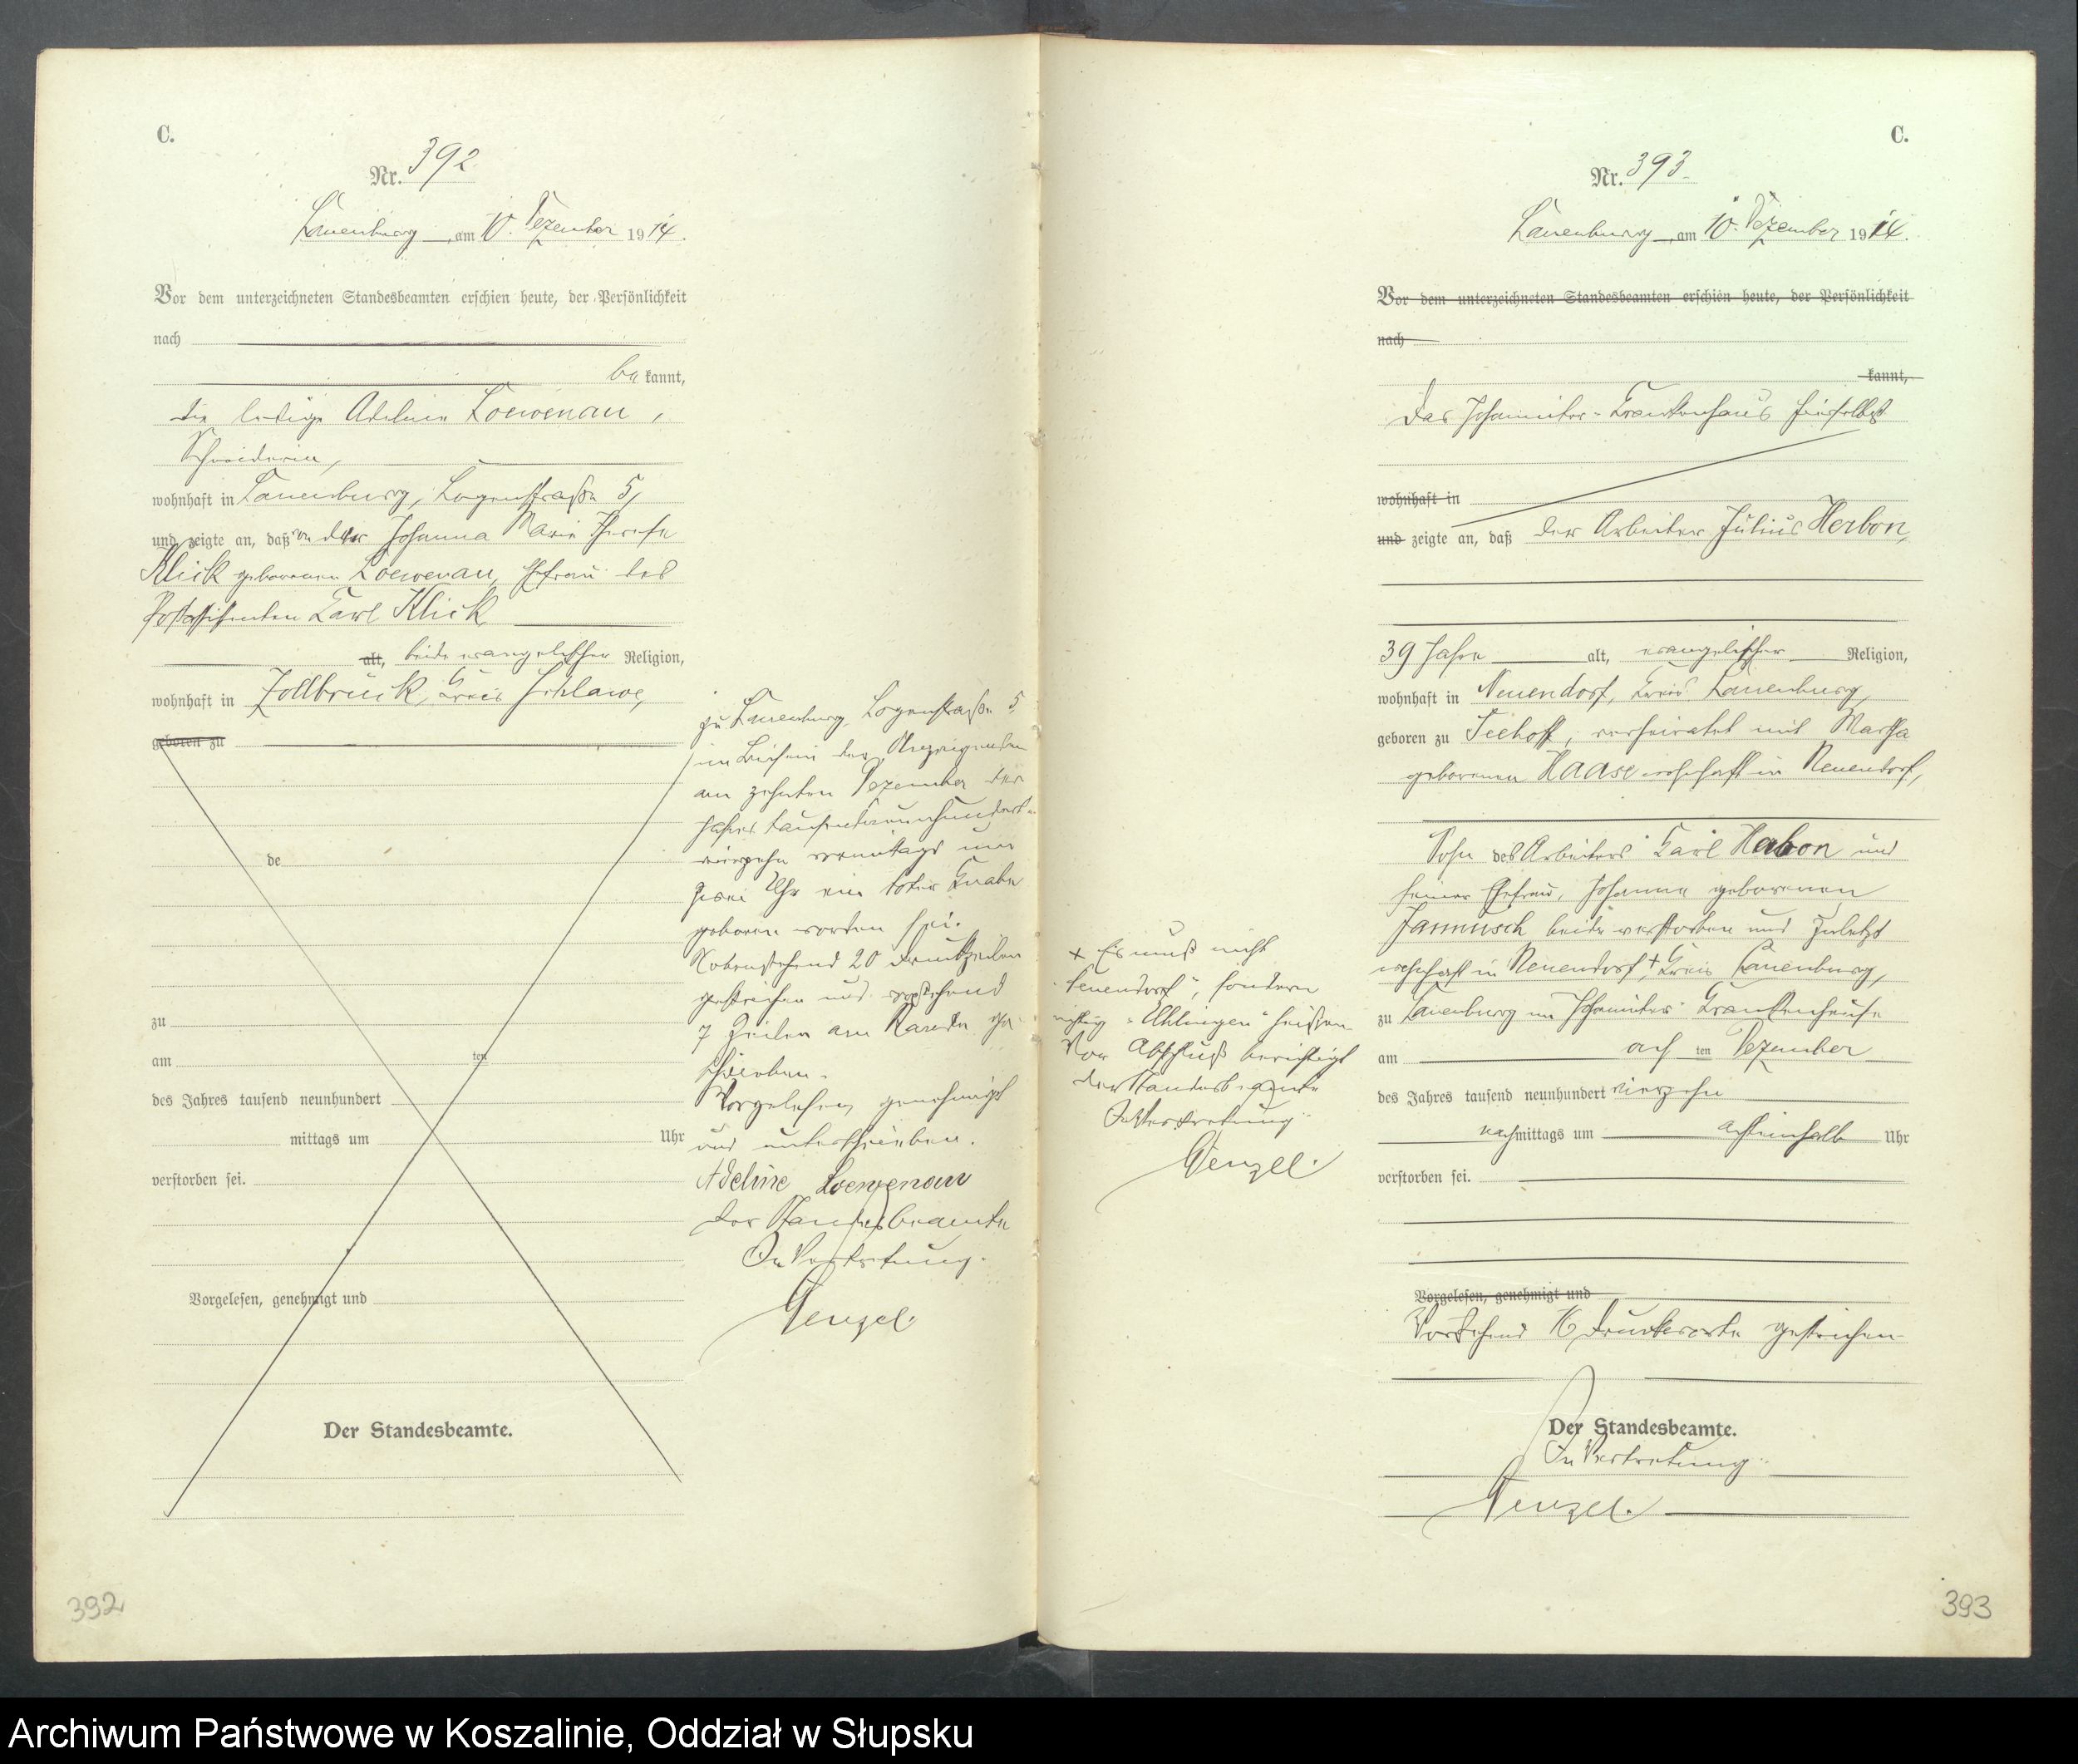 C.
Nr. 392
Lauenburg, am 10. Dezember 1914.
Vor dem unterzeichneten Standesbeamten erschien heute, der Persönlichkeit
nach
be kannt,
die ledige Adeline Loewenau,
Schneiderin,
wohnhaft in Lauenburg, Logenstraße 5,
und zeigte an, daß von der Johanna Marie Therese
Klick geborenen Loewenau, Ehefrau des
Postassistenten Karl Klick
alt, beide evangelischer Religion,
wohnhaft in Zollbrück, Kreis Schlawe,
geboren zu
de
zu
am ten
des Jahres tausend neunhundert
mittags um Uhr
verstorben sei.
Vorgelesen, genehmigt und
Der Standesbeamte.
zu Lauenburg, Logenstraße 5
im Beisein der Anzeigenden
am zehnten Dezember des
Jahres tausendneunhundert-
vierzehn vormittags um
zwei Uhr ein toter Knabe
geboren worden sei.
Nebenstehend 20 Druckzeilen
gestrichen und vorstehend
7 Zeilen am Rande ge-
schrieben.
Vorgelesen, genehmigt
und unterschrieben.
Adeline Loewenau
Der Standesbeamte
In Vertretung.
Genzel.
392
C.
Nr. 393.
Lauenburg, am 10. Dezember 1914.
Vor dem unterzeichneten Standesbeamten erschien heute, der Persönlichkeit
nach
kannt,
Das Johanniter-Krankenhaus hierselbst
wohnhaft in
und zeigte an, daß der Arbeiter Julius Herbon,
39 Jahre alt, evangelischer Religion,
wohnhaft in Neuendorf, Kreis Lauenburg,
geboren zu Seehoff, verheiratet mit Martha
geborenen Haase wohnhaft in Neuendorf,
Sohn des Arbeiters Karl Herbon und
seiner Ehefrau, Johanna geborenen
Jannusch beide verstorben und zuletzt
wohnhaft in Neuendorf,+ Kreis Lauenburg,
zu Lauenburg im Johanniter-Krankenhause
am acht ten Dezember
des Jahres tausend neunhundert vierzehn
nachmittags um achteinhalb Uhr
verstorben sei.
Vorgelesen, genehmigt und
Vorstehend 16 Druckworte gestrichen
Der Standesbeamte.
In Vertretung.
Genzel.
+ Es muß nicht
"Neuendorf", sondern
richtig "Uhlingen" heißen
Vor Abschluß berichtigt
Der Standesbeamte
In Vertretung.
Genzel.
393
Archiwum Państwowe w Koszalinie, Oddział w Słupsku